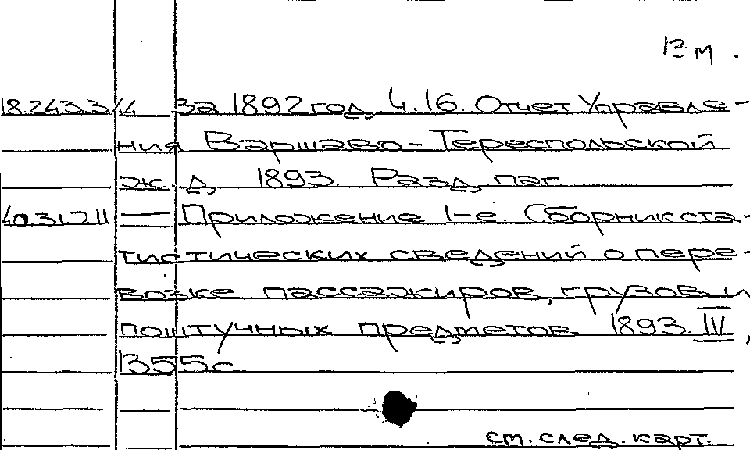 12 м.
18.243.3/4 За 1892 год. Ч. 16. Отчет Управле-
ния Варшаво-Тереспольской
ж.д, 1893. Разд. паг.
40.31.211 — Приложение 1-е. Сборник ста-
тистических сведений о пере-
возке пассажиров, грузов и
поштучных предметов. 1893. III,
355 с.
см. след. карт.